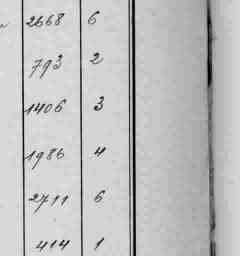 2668 6
793 2
1406 3
1986 4
2711 6
414 1